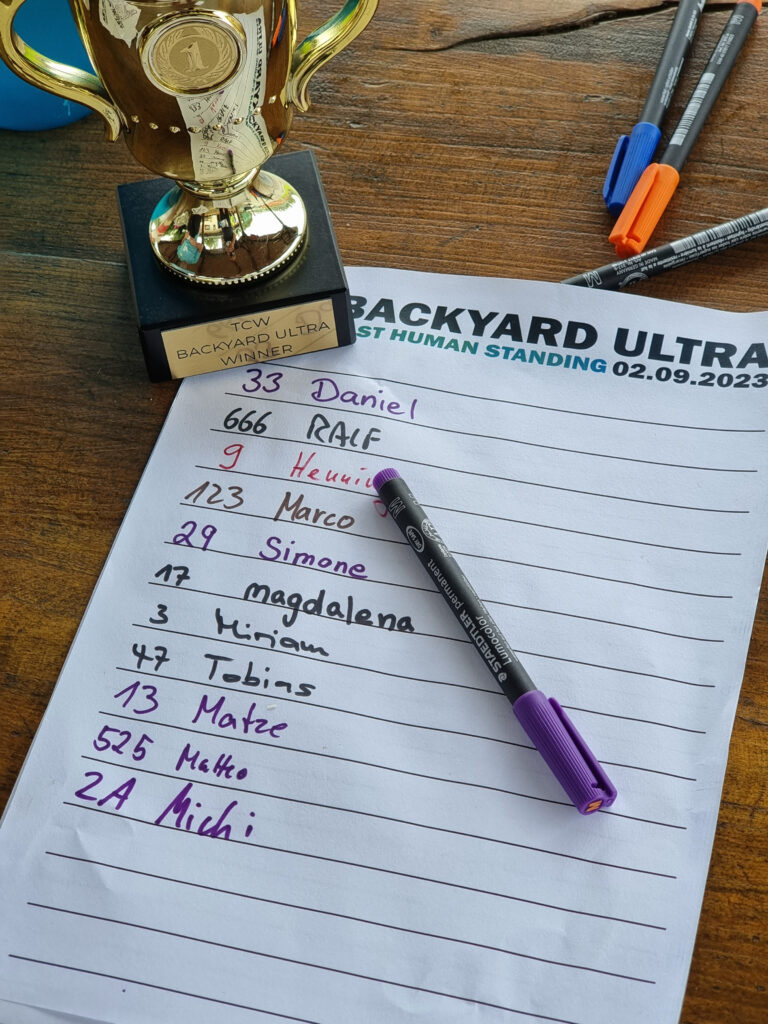 1
TCW
BACKYARD ULTRA
WINNER
BACKYARD ULTRA
HUMAN STANDING 02.09.2023
33 Daniel
666 RALF
9
123 Marco
29 Simone
17 magdalena
3 Miriam
47 Tobias
13 Matze
525
2A Michi
STAEDTLER permanent
Lumocolor